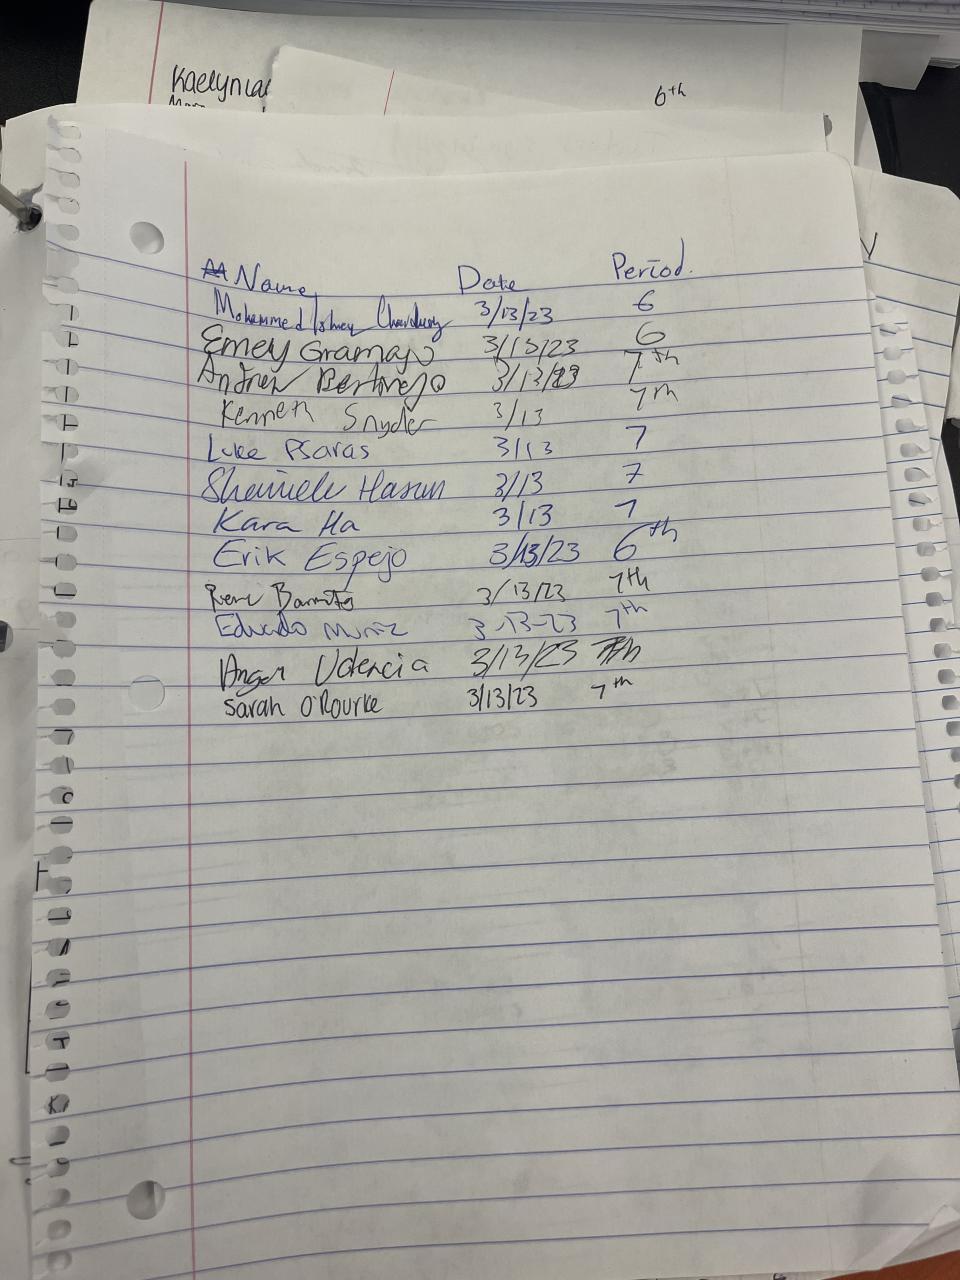 6th
Name Date Period.
Mohammed 3/13/23 6
Emey Gramajo 3/15/23 6
Andrew 3/13/23 7th
Kenneth Snyder 3/13 7th
Luke Psaras 3/13 7
Hasan 3/13 7
Kara Ha 3/13 7
Erik Espejo 3/13/23 6th
3/13/23 7th
Eduardo Muniz 3-13-23 7th
Angel Valencia 3/13/23 7th
Sarah O'Rourke 3/13/23 7th